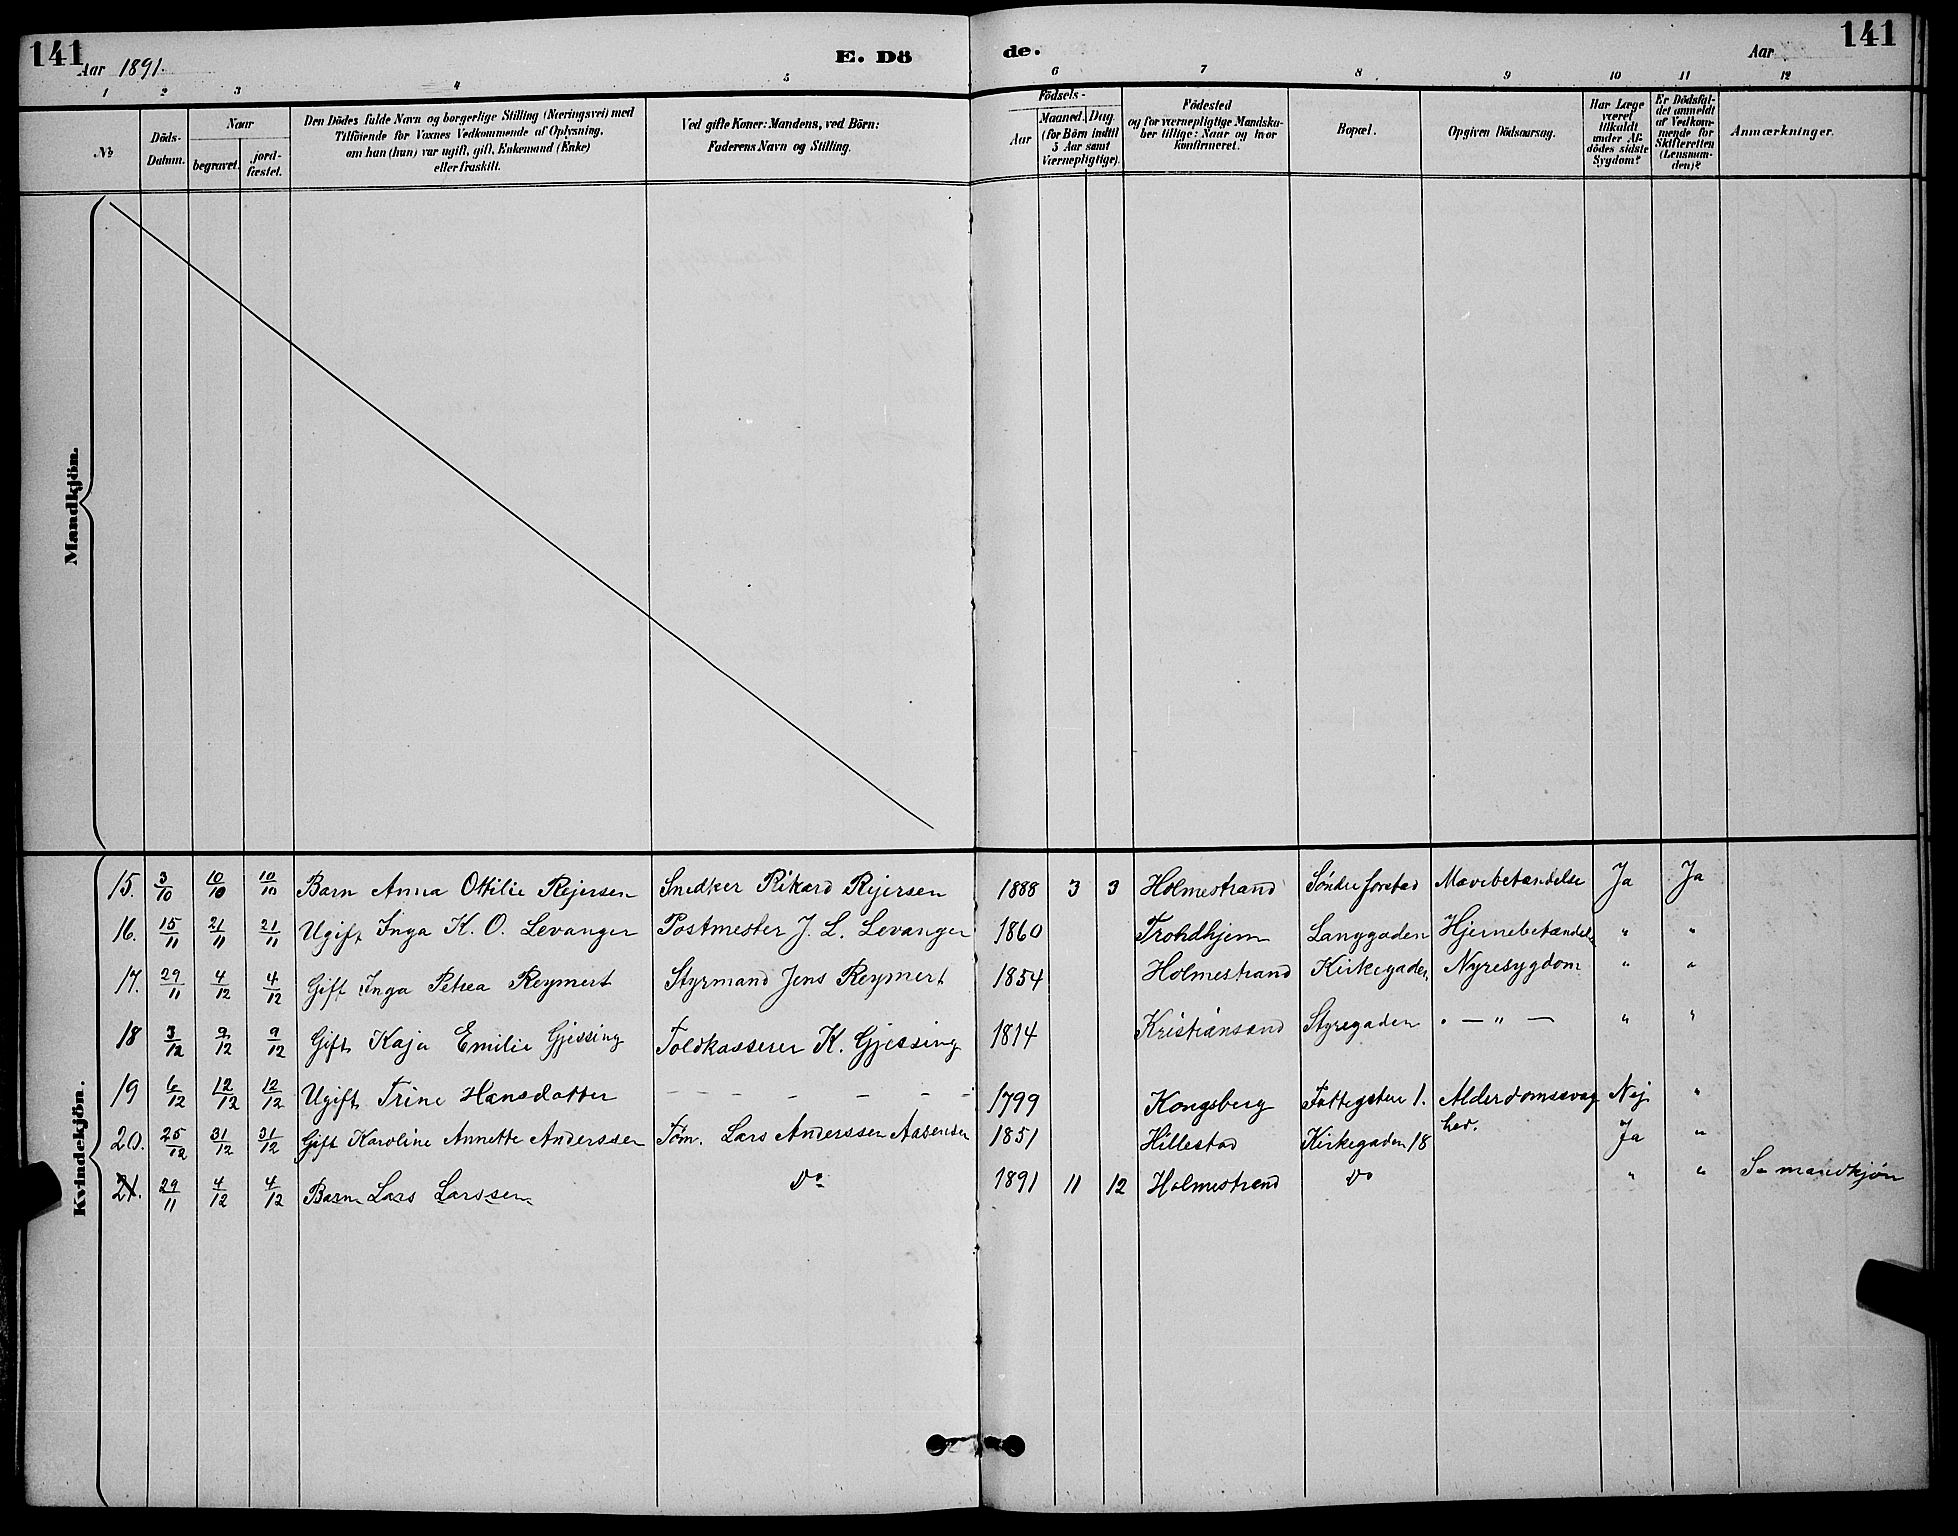 141
Aar 1891.
E. Dö
de.
Aar
141
1 2 3 4 5 6 7 8 9 10 11 12
No
Döds-Datum.
Naar
begravet.
jord-fæstet.
Den Dödes fulde Navn og borgerlige Stilling (Næringsvei) med
Tilföiende for Voxnes Vedkommende af Oplysning,
om han (hun) var ugift, gift, Enkemand (Enke)
eller fraskilt.
Ved gifte Koner: Mandens, ved Börn:
Faderens Navn og Stilling.
Födsels-
Aar
Maaned. Dag.
(for Börn indtil
5 Aar samt
Værnepligtige).
Födested
og for værnepligtige Mandska-
ber tillige: Naar og hvor
konfirmeret.
Bopæl.
Opgiven Dödsaarsag.
Har Læge
været
tilkaldt
under Af-
dödes sidste
Sygdom?
Er Dödsfal-
det anmeldt
af Vedkom-
mende for
Skifteretten
(Lensman-
den)?
Anmærkninger.
Mandkjön.
Kvindekjön.
15. 3/10 10/10 10/10 Barn Anna Ottilie Rejersen Snedker Rikard Rejersen 1888 3 3 Holmestrand Søndre forstad Mavebetændelse Ja Ja
16. 15/11 21/11 21/11 Ugift Inga K. O. Levanger Postmester J. L. Levanger 1860 Trondhjem Langgaden Hjernebetændelse " "
17. 29/11 4/12 4/12 Gift Inga Petrea Reymert Styrmand Jens Reymert 1854 Holmestrand Kirkegaden Nyresygdom " "
18 3/12 9/12 9/12 Gift Kaja Emilie Gjessing Toldkasserer K. Gjessing 1814 Kristiansand Styregaden " — " — " "
19 6/12 12/12 12/12 Ugift Trine Hansdatter - - - - - - 1799 Kongsberg Fattegsten 1. Alderdomssvag Nej "
hed.
20. 25/12 31/12 31/12 Gift Karoline Annette Anderssen Tøm. Lars Anderssen Aasenden 1851 Hillestad Kirkegaden 18 Ja "
21. 29/11 4/12 4/12 Barn Lars Larssen Do 1891 11 12 Holmestrand Do " " Se mandkjøn